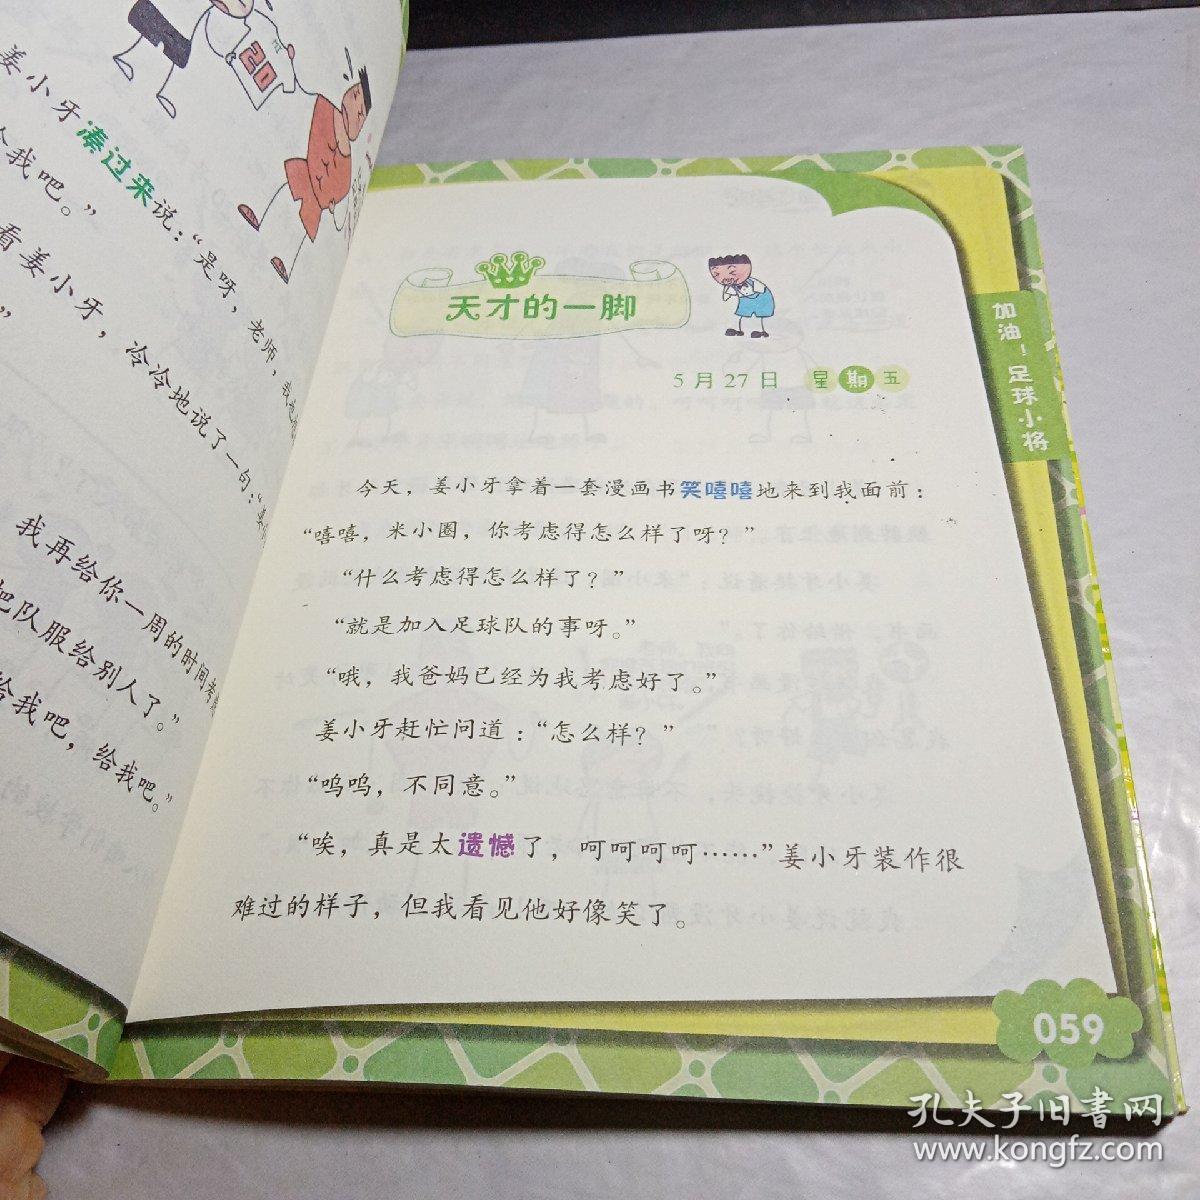 20
姜小牙凑过来说：“是呀，老师，
我吧。”
看姜小牙，冷冷地说了一句：“
”
我再给你一周的时间考
把队服给别人了。”
给我吧，给我吧。”
天才的一脚
5月27日 星期五
今天，姜小牙拿着一套漫画书笑嘻嘻地来到我面前：
“嘻嘻，米小圈，你考虑得怎么样了呀？”
“什么考虑得怎么样了？”
“就是加入足球队的事呀。”
“哦，我爸妈已经为我考虑好了。”
姜小牙赶忙问道：“怎么样？”
“呜呜，不同意。”
“唉，真是太遗憾了，呵呵呵呵……”姜小牙装作很
难过的样子，但我看见他好像笑了。
加油！足球小将
059
孔夫子旧书网
www.kongfz.com